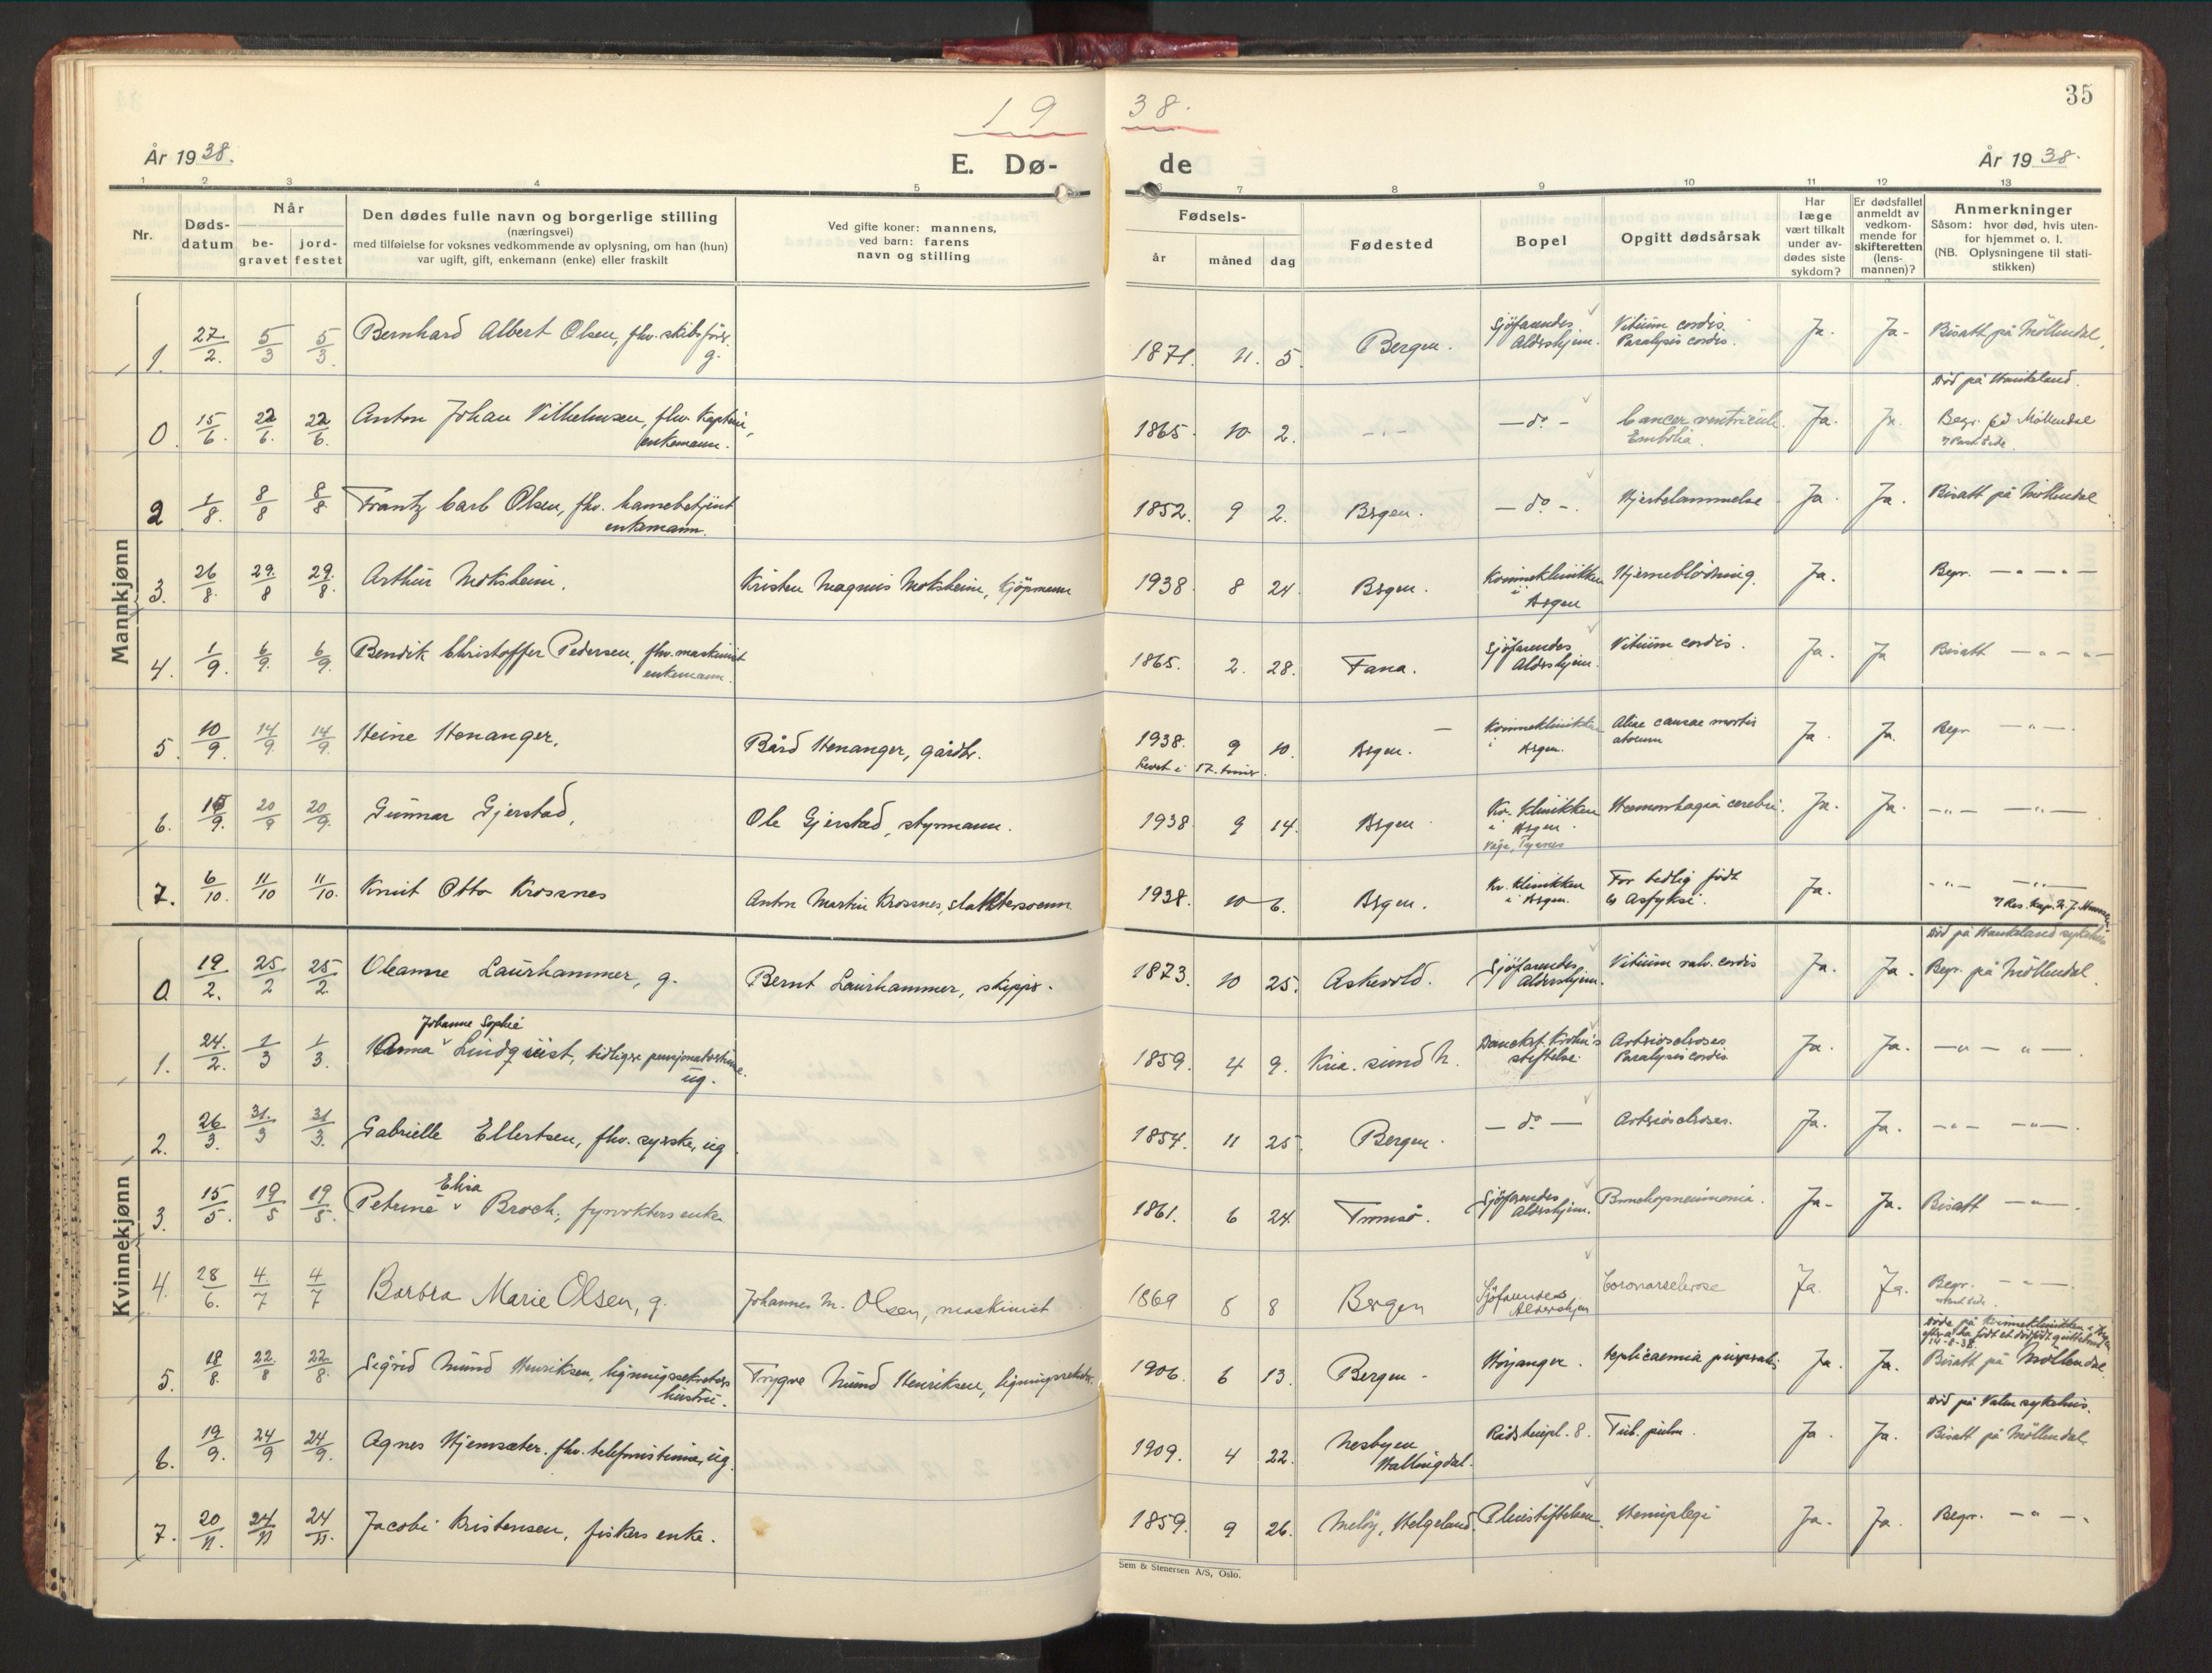 19 38.
35
År 1938.
E. Dø- de
År 1938.
1 2 3 4 5 6 7 8 9 10 11 12 13
Nr.
Døds-
datum
Når
be-
gravet
jord-
festet
Den dødes fulle navn og borgerlige stilling
(næringsvei)
med tilføielse for voksnes vedkommende av oplysning, om han (hun)
var ugift, gift, enkemann (enke) eller fraskilt
Ved gifte koner: mannens,
ved barn: farens
navn og stilling
Fødsels-
år måned dag
Fødested
Bopel
Opgitt dødsårsak
Har
læge
vært tilkalt
under av-
dødes siste
sykdom?
Er dødsfallet
anmeldt av
vedkom-
mende for
skifteretten
(lens-
mannen)?
Anmerkninger
Såsom: hvor død, hvis uten-
for hjemmet o. l.
(NB. Oplysningene til stati-
stikken)
Mannkjønn
1. 27/2. 5/3 5/3. Bernhard Albert Olsen, fhv. skibsfører. g. 1871. 11. 5. Bergen. Sjöfarendes Aldershjem. Vitium cordis. Paralysis cordis. Ja. Ja. Bisatt på Möllendal.
0. 15/6. 22/6. 22/6. Anton Johan Vilhelmsen, fhv. Kaptein, enkemann. 1865. 10 2. -"- -do- Cancer ventriculi. Emboli. Ja. Ja. Död på Haukeland. Begr. på Möllendal
2 1/8. 8/8 8/8 Frantz Carl Olsen, fhv. havnebetjent enkemann. 1852. 9 2. Bergen. -do-. Hjertelammelse Ja. Ja. Bisatt på Möllendal
3. 26/8. 29./8 29./8. Arthur Moksheim. Kristen Magnus Moksheim, kjöpmann 1938. 8 24. Bergen. Kvinneklinikken i Bergen Hjerneblödning. Ja. Begr. -"-"-
4. 1/9. 6/9. 6/9. Bendik Christoffer Pedersen, fhv. maskinist enkemann. 1865. 2. 28. Fana. Sjöfarendes Aldershjem. Vitium cordis. Ja. Ja Bisatt -"-"-
5. 10/9. 14/9. 14/9. Heine Henanger. Bård Henanger, gårdbr. 1938. 9 10. Levet i 17. timer. Bergen. Kvinneklinikken i Bergen. Aliae causae mortis Ja. Ja. Begr -"-
6. 15/9. 20/9 20/9. Gunnar Gjerstad. Ole Gjerstad, styrmann. 1938. 9 14. Bergen Kv. Klinikken i Bergen. Våge, Tysnes Haemorrhagia cerebri. Ja. Ja. -"- -"-
7. 6/10. 11/10 11/10. Knut Otto Krossnes Anton Martin Krossnes, slaktersvenn 1938. 10 6. Bergen. Kv. klinikken i Bergen. For tidlig födt og Asfyksi. Ja. -"- -"-
Kvinnekjønn
0. 19/2. 25/2 25/2. Oleanne Laurhammer, g. Bernt Laurhammer, skipper. 1873. 10 25. Askevold. Sjöfarendes Aldershjem. Vitium valv. cordis Ja. Ja. Död på Haukeland sykehus Begr. på Möllendal.
1. 24./2. 1/3 1/3. Anna Johanne Sophie Lindquist, tidligere pensjonatvertinne. ug. 1859. 4 9. Kria.sund N. Danckert Krohn's stiftelse. Arteriosclroses Paralysis cordis Ja. Ja. -"- "-.
2. 26/3. 31./3 31/3. Gabrielle Ellertsen, fhv. syerske, ug. 1854. 11 25 Bergen. -do- Arteriosclroses. Ja. Ja. -"- -"-.
3. 15/5. 19/5 19/5. Petrine Elisa Broch, fyrvokters enke 1861. 6 24. Tromsö. Sjöfarendes Aldershjem. Bronchopneumonia. Ja. Ja. Bisatt -"-.
4. 28/6. 4./7 4/7 Barbra Marie Olsen, g. Johannes M. Olsen, maskinist 1869 5 8 Bergen Sjöfarendes Aldershjem Coronarsclerose Ja. Ja. Begr. -"-.
5. 18/8. 22./8 22./8. Sigrid Mund Henriksen, ligningssekretærs hustru. Trygve Mund Henriksen, ligningssekretær. 1906. 6 13. Bergen. Höyanger. septicaemia puerperalis Ja. Ja. Döde på Kvinneklinikken i Bergen efter at ha födt et dödfödt guttebarn 14-8-38. Bisatt på Möllendal.
6. 19/9. 24/9 24/9. Agnes Hjemsæter. fhv. telefonistinne, ug. 1909. 4 22. Nesbyen Hallingdal. Rådstupl. 8. Tub. pulm. Ja. Ja. Död på Valen sykehus. Bisatt på Möllendal.
7. 20/11. 24/11 24/11. Jacobi Kristensen, fiskers enke. 1859. 9 26. Melöy, Helgeland. Pleiestiftelsen. Hemiplegi Ja. Ja. Begr. -"-.
Sem & Stenersen A/S, Oslo.